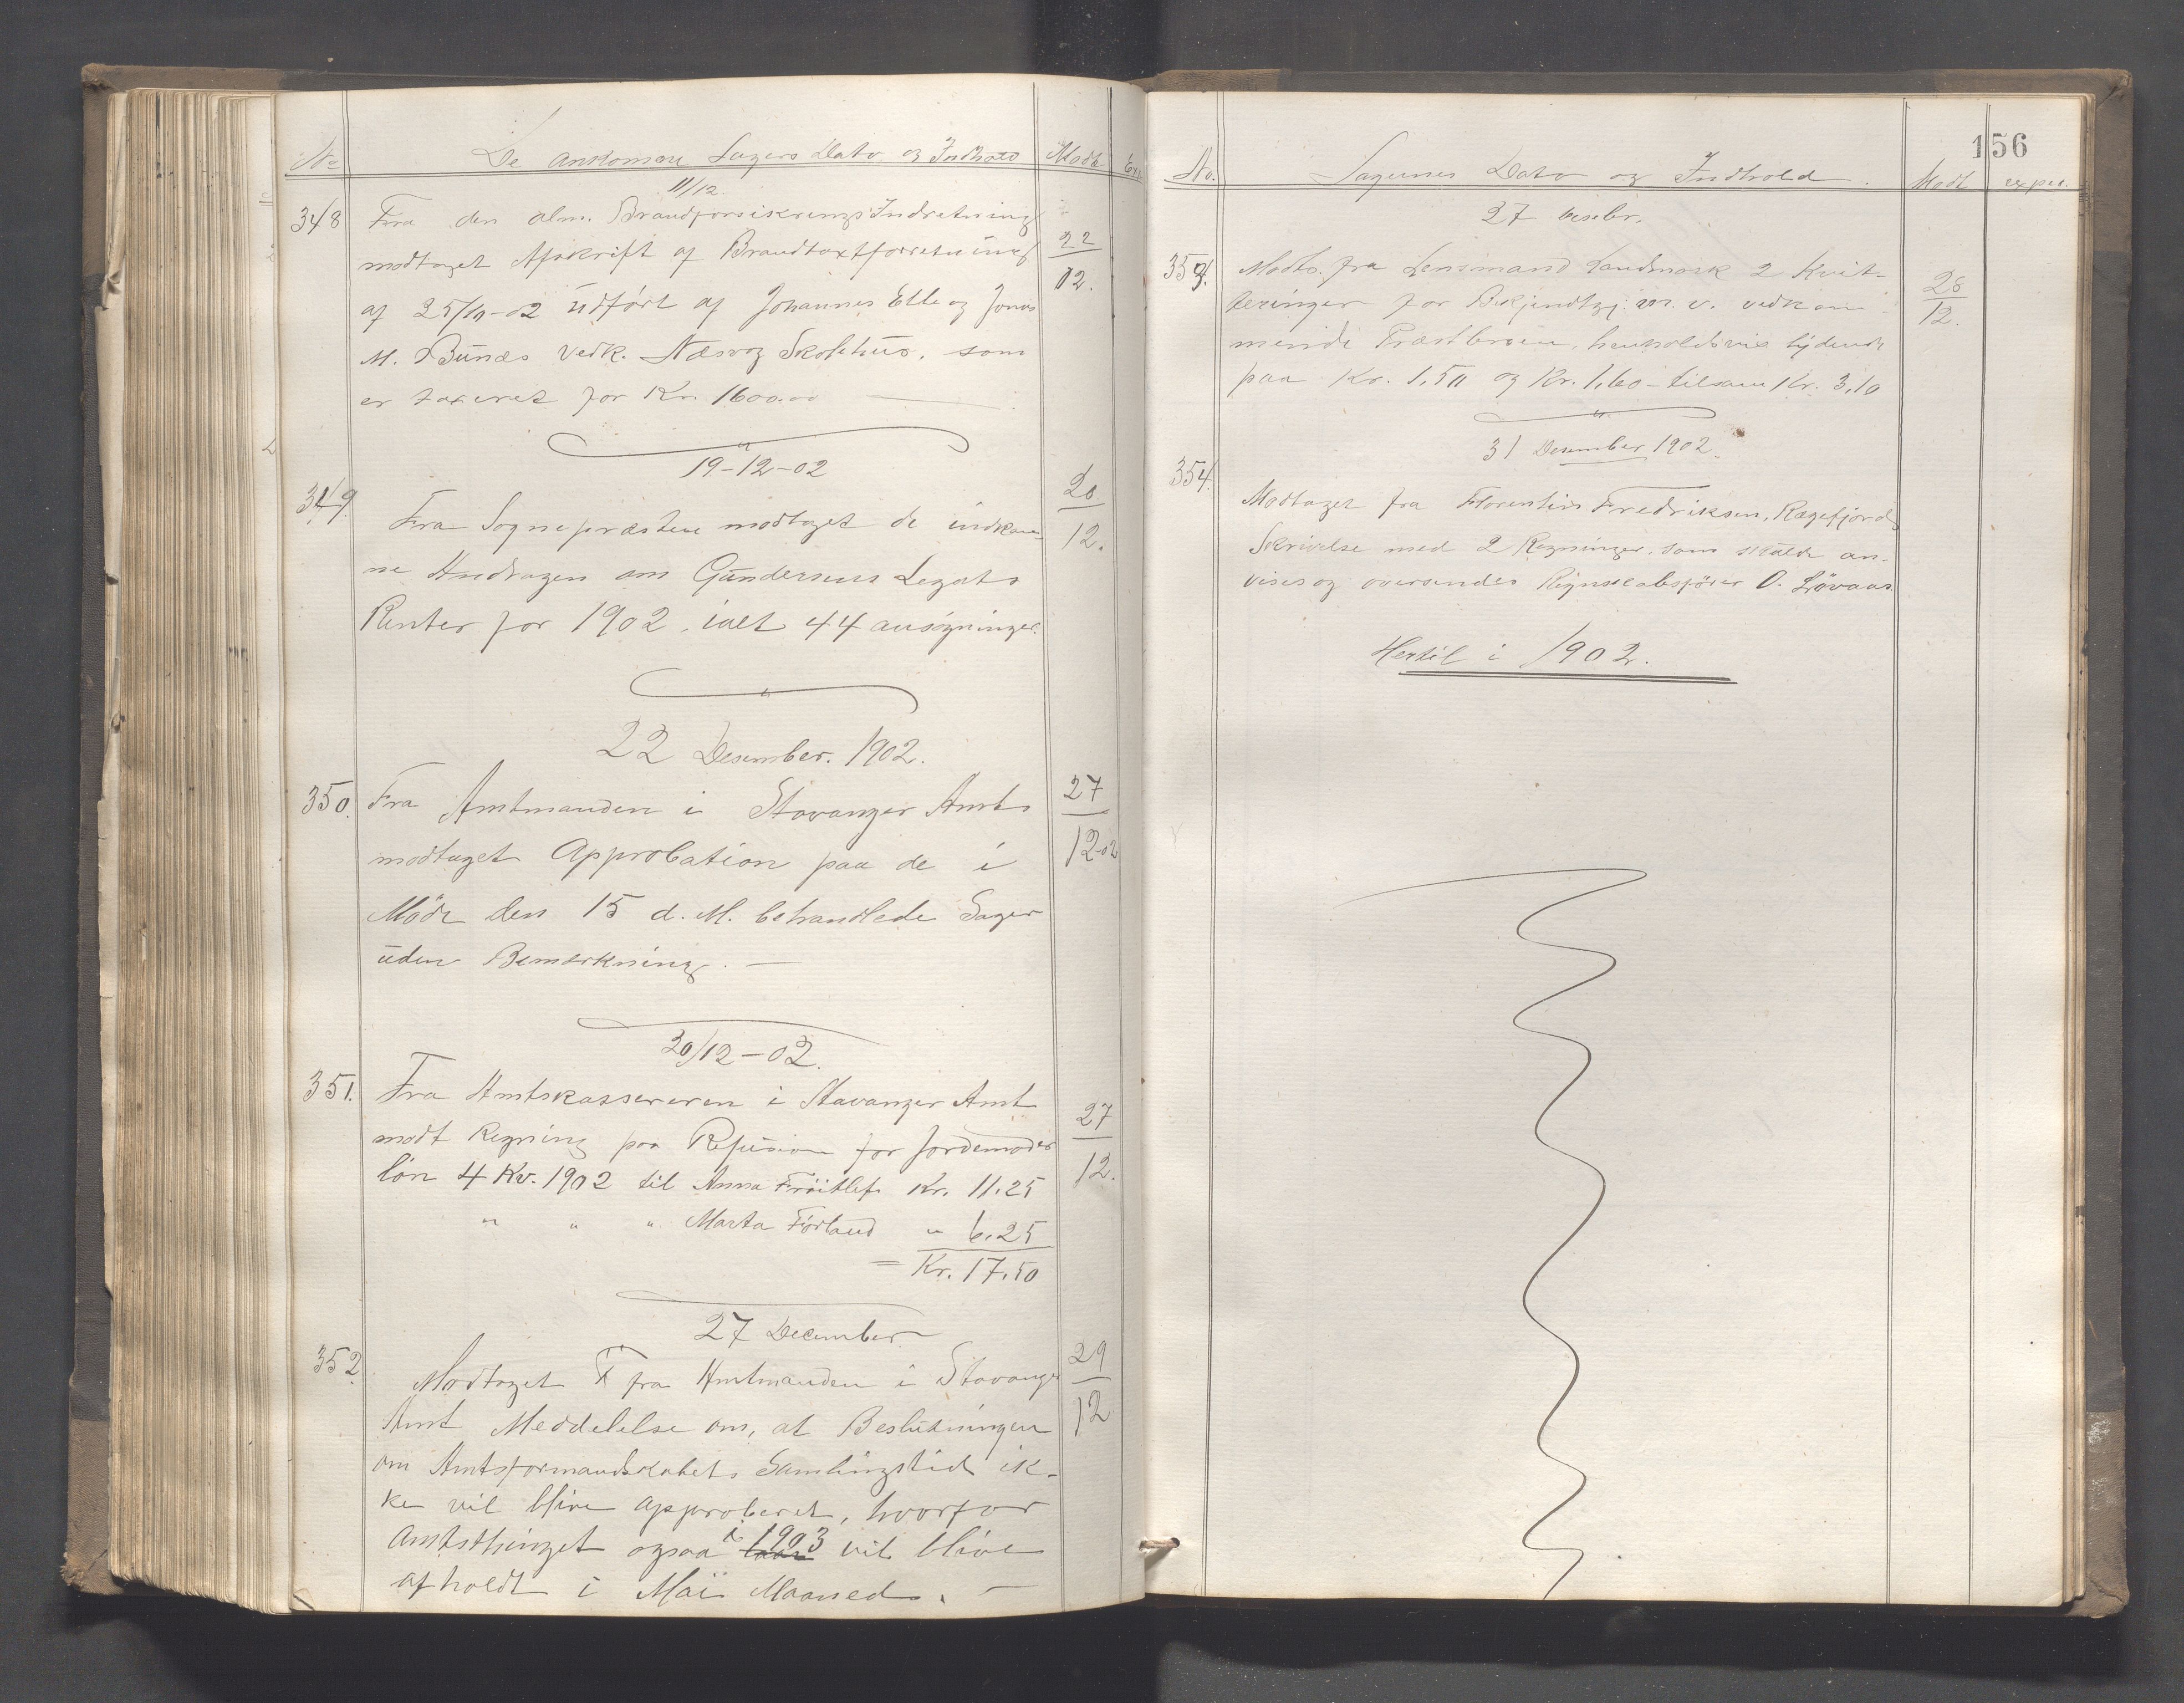 No De ankomne Sagers Dato og Indhold Modt. Exp.
11/12.
348 Fra den alm. Brandforsikrings Indretning
modtaget Afskrift af Brandtaxtforretning 22/12.
af 25/11-02 udført af Johannes Elle og Jonas
M. Bunæs vedk. Næsvog Skolehus, som
er taxeret for Kr. 1600.00
19-12-02
349. Fra Sognepræsten modtaget de indkom- 20/12.
ne Andragen om Gundersens Legats
Renter for 1902, ialt 44 ansøgninger.
22 Desember. 1902.
350. Fra Amtmanden i Stavanger Amt 27/12-02
modtaget Approbation paa de i
Møde den 15 d. M. behandlede Sager
uden Bemærkning. —
20/12-02.
351. Fra Amtskassereren i Stavanger Amt
modt Regning paa Refusion for Jordemoder 27/12.
løn 4 Kv. 1902 til Anna Frøitlef. Kr. 11.25
" " " Marta Førland " 6.25
= Kr. 17.50
27 December
352. Modtaget fra Amtmanden i Stavanger 29/12
Amt Meddelelse om, at Beslutningen
om Amtsformandskabets Samlingstid ik-
ke vil blive approberet, hvorfor
Amtsthinget ogsaa i 1903 vil blive
afholdt i Mai Maaned. —
156
No. Sagernes Dato og Indhold. Modt exped.
27 Deseber.
353. Modto. fra Lensmand Landmark 2 Kvit- 28/12.
teringer for Bekjendtgj. m. v. vedkom-
mende Præstbroen, henholdsvis lydende
paa Kr. 1,50 og Kr. 1,60 - tilsam Kr. 3,10
31 Desember 1902.
354. Modtaget fra Florentin Fredriksen, Rægefjord
Skrivelse med 2 Regninger, som skulde an-
vises og oversendes Regnskabsfører O. Løvaas.
Hertil i 1902.